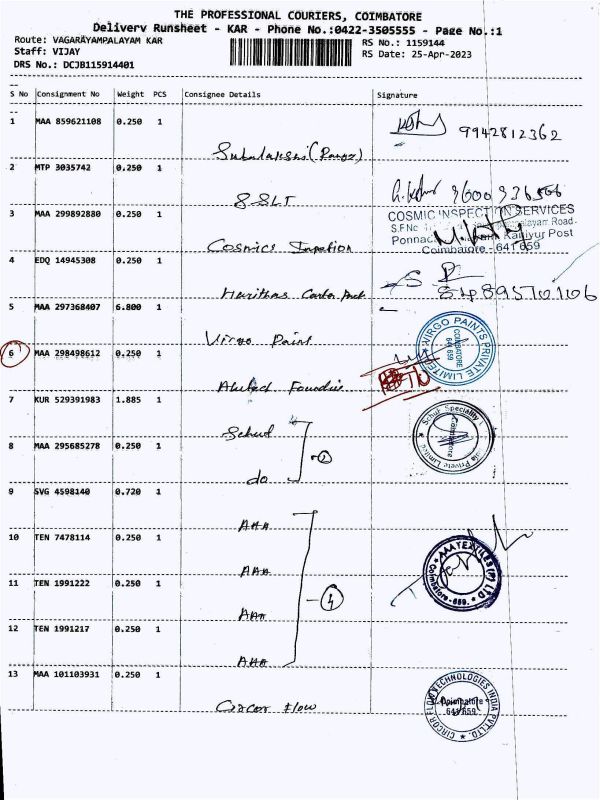 THE PROFESSIONAL COURIERS, COIMBATORE
Delivery Runsheet - KAR - Phone No.:0422-3505555 - Page No.:1
Route: VAGARAYAMPALAYAM KAR
RS No.: 1159144
Staff: VIJAY
RS Date: 25-Apr-2023
DRS No.: DCJB115914401
S No Consignment No Weight PCS Consignee Details Signature
1 MAA 859621108 0.250 1
9942812362
2 MTP 3035742 0.250 1
SSLT
3 MAA 299892880 0.250 1
COSMIC INSPECTION SERVICES
Kaniyur Post
Coimbatore - 641 659
4 EDQ 14945308 0.250 1
5 MAA 297368407 6.800 1
Virgo Paint
VIRGO PAINTS PRIVATE LIMITED
COIMBATORE
641 659
6 MAA 298498612 0.250 1
7 KUR 529391983 1.885 1
Schuf
Schuf Speciality
Coimbatore
India Private Limited
8 MAA 295685278 0.250 1
do
2
9 SVG 4598140 0.720 1
AAA
10 TEN 7478114 0.250 1
AAA
AAA TEXTILES (P) LTD
Coimbatore - 659.
11 TEN 1991222 0.250 1
AAA
4
12 TEN 1991217 0.250 1
AAA
13 MAA 101103931 0.250 1
Circor Flow
CIRCOR FLOW TECHNOLOGIES INDIA PVT.LTD.
Coimbatore
641 659